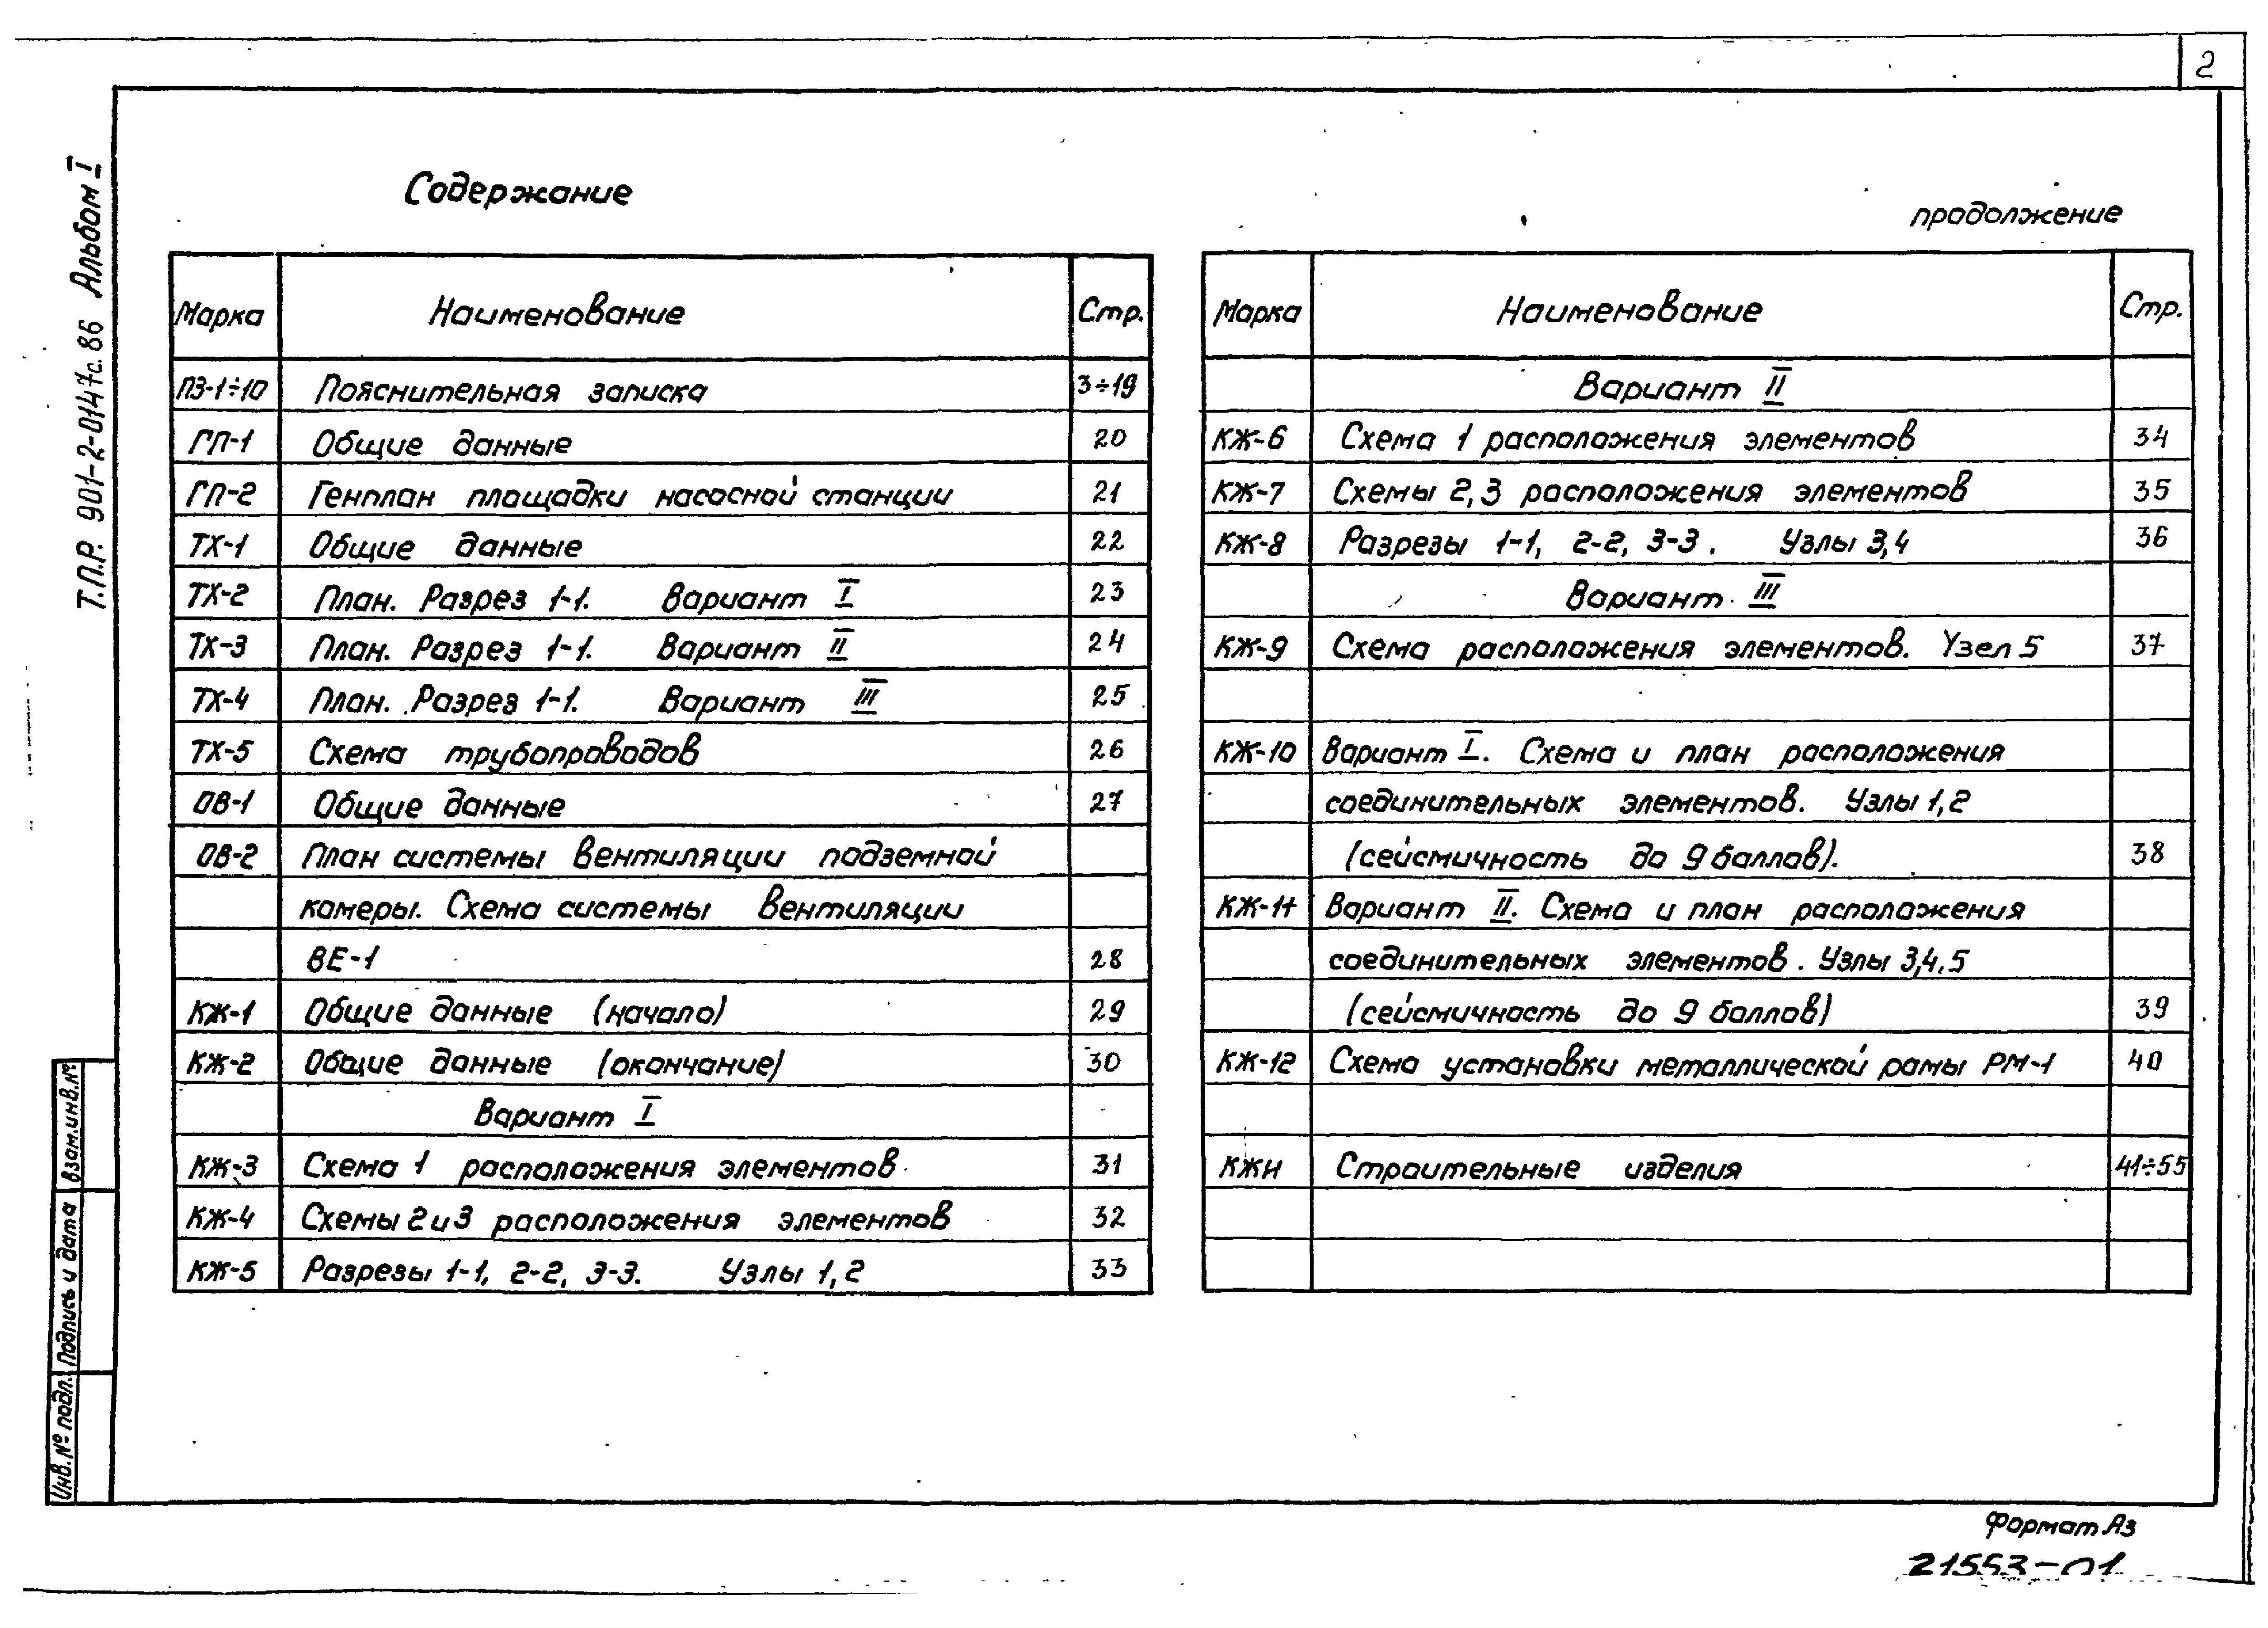 2
Т.П.Р. 901-2-0147с.86 Альбом I
Содержание
Марка Наименование Стр.
ПЗ-1÷10 Пояснительная записка 3÷19
ГП-1 Общие данные 20
ГП-2 Генплан площадки насосной станции 21
ТХ-1 Общие данные 22
ТХ-2 План. Разрез 1-1. Вариант I 23
ТХ-3 План. Разрез 1-1. Вариант II 24
ТХ-4 План. Разрез 1-1. Вариант III 25
ТХ-5 Схема трубопроводов 26
ОВ-1 Общие данные 27
ОВ-2 План системы вентиляции подземной
камеры. Схема системы вентиляции
ВЕ-1 28
КЖ-1 Общие данные (начало) 29
КЖ-2 Общие данные (окончание) 30
Вариант I
КЖ-3 Схема 1 расположения элементов 31
КЖ-4 Схемы 2 и 3 расположения элементов 32
КЖ-5 Разрезы 1-1, 2-2, 3-3. Узлы 1,2 33
продолжение
Марка Наименование Стр.
Вариант II
КЖ-6 Схема 1 расположения элементов 34
КЖ-7 Схемы 2,3 расположения элементов 35
КЖ-8 Разрезы 1-1, 2-2, 3-3. Узлы 3,4 36
Вариант III
КЖ-9 Схема расположения элементов. Узел 5 37
КЖ-10 Вариант I. Схема и план расположения
соединительных элементов. Узлы 1,2
(сейсмичность до 9 баллов). 38
КЖ-11 Вариант II. Схема и план расположения
соединительных элементов. Узлы 3,4,5
(сейсмичность до 9 баллов) 39
КЖ-12 Схема установки металлической рамы РМ-1 40
КЖИ Строительные изделия 41÷55
Взам.инв.№
Подпись и дата
Инв.№ подл.
Формат А3
21553-01